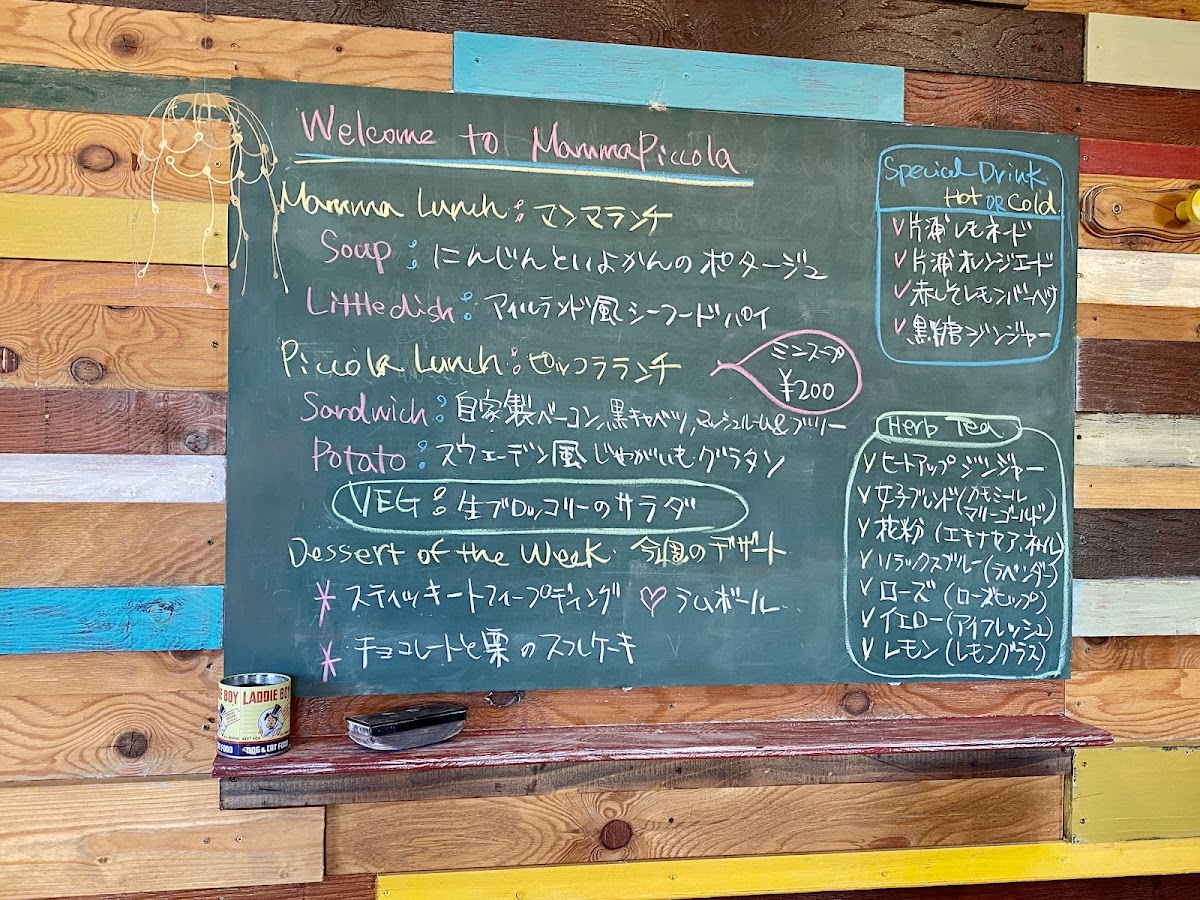 Welcome to MammaPiccola
Mamma Lunch : マンマランチ
Soup : にんじんといよかんのポタージュ
Little dish : アイルランド風シーフードパイ
Piccola Lunch : ピッコラランチ
ミニスープ
¥200
Sandwich : 自家製ベーコン,黒キャベツ,マッシュルーム&ブリー
Potato : スウェーデン風じゃがいもグラタン
VEG : 生ブロッコリーのサラダ
Dessert of the Week 今週のデザート
* スティッキートフィープディング ♡ ラムボール
* チョコレートと栗のスフレケーキ
Special Drink
Hot OR Cold
✓片浦レモネード
✓片浦オレンジエード
✓赤しそレモンバーベナ
✓黒糖ジンジャー
Herb Tea
✓ヒートアップジンジャー
✓女子ブレンド(カモミール
マリーゴールド)
✓花粉(エキナセア,ネトル)
✓リラックスブルー(ラベンダー)
✓ローズ(ローズヒップ)
✓イエロー(アイフレッシュ)
✓レモン(レモングラス)
LADDIE BOY
DOG & CAT FOOD